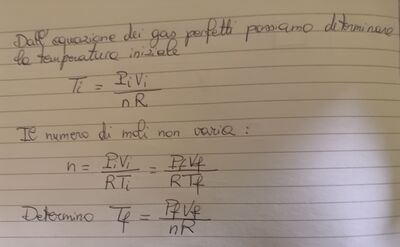 Dall' equazione dei gas perfetti possiamo determinare
la temperatura iniziale
Ti = PiVi / nR
Il numero di moli non varia :
n = PiVi / RTi = PfVf / RTf
Determino Tf = PfVf / nR